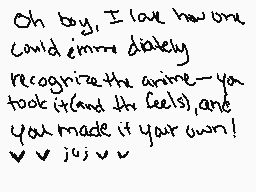 Oh boy, I love how one
could immediately
recognize the anime—you
took it (and the feels), and
you made it your own!
♥ ♥ juj ♥ ♥